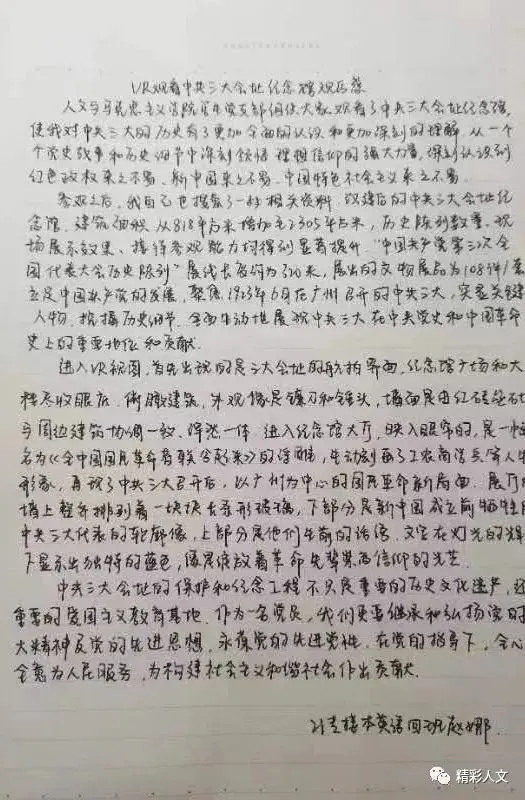 VR观看中共三大会址纪念馆观后感
人文与马克思主义学院学生党支部组织大家观看了中共三大会址纪念馆,
使我对中共三大的历史有了更加全面的认识和更加深刻的理解。从一个
个党史故事和历史细节中深刻领悟理想信仰的强大力量,深刻认识到
红色政权来之不易、新中国来之不易、中国特色社会主义来之不易。
参观之后,我自己也搜索了一些相关资料,改建后的中共三大会址纪
念馆,建筑面积从818平方米增加至2305平方米,历史陈列数量、现
场展示效果、接待参观能力均得到显著提升。“中国共产党第三次全
国代表大会历史陈列”展线长度约为300米,展出的文物展品为1083件/套
立足中国共产党的发展,聚焦1923年6月在广州召开的中共三大,突显关键
人物、挖掘历史细节、全面生动地展现中共三大在中共党史和中国革命
史上的重要地位和贡献。
进入VR视图,首先出现的是三大会址的航拍界面,纪念馆广场和大
尽收眼底。俯瞰建筑,外观像是镰刀和锤头,墙面是由红砖
与周边建筑协调一致、浑然一体。进入纪念馆大厅,映入眼帘的,是一
名为《全中国国民革命者联合起来》的浮雕,生动刻画了工农商学兵等人
形象,再现了中共三大召开后,以广州为中心的国民革命新局面。展厅
墙上整齐排列着一块块长条形玻璃,下部分是新中国成立前牺牲
中共三大代表的轮廓像,上部分是他们生前的话语,文字在灯光的
下显示出独特的蓝色,像是绽放着革命先辈崇高信仰的光芒。
中共三大会址的保护和纪念工程不只是重要的历史文化遗产,还
重要的爱国主义教育基地。作为一名党员,我们更要继承和弘扬党的
大精神及党的先进思想,永葆党的先进党性。在党的指导下,全心
全意为人民服务,为构建社会主义和谐社会作出贡献。
本英语四班赵娜
精彩人文